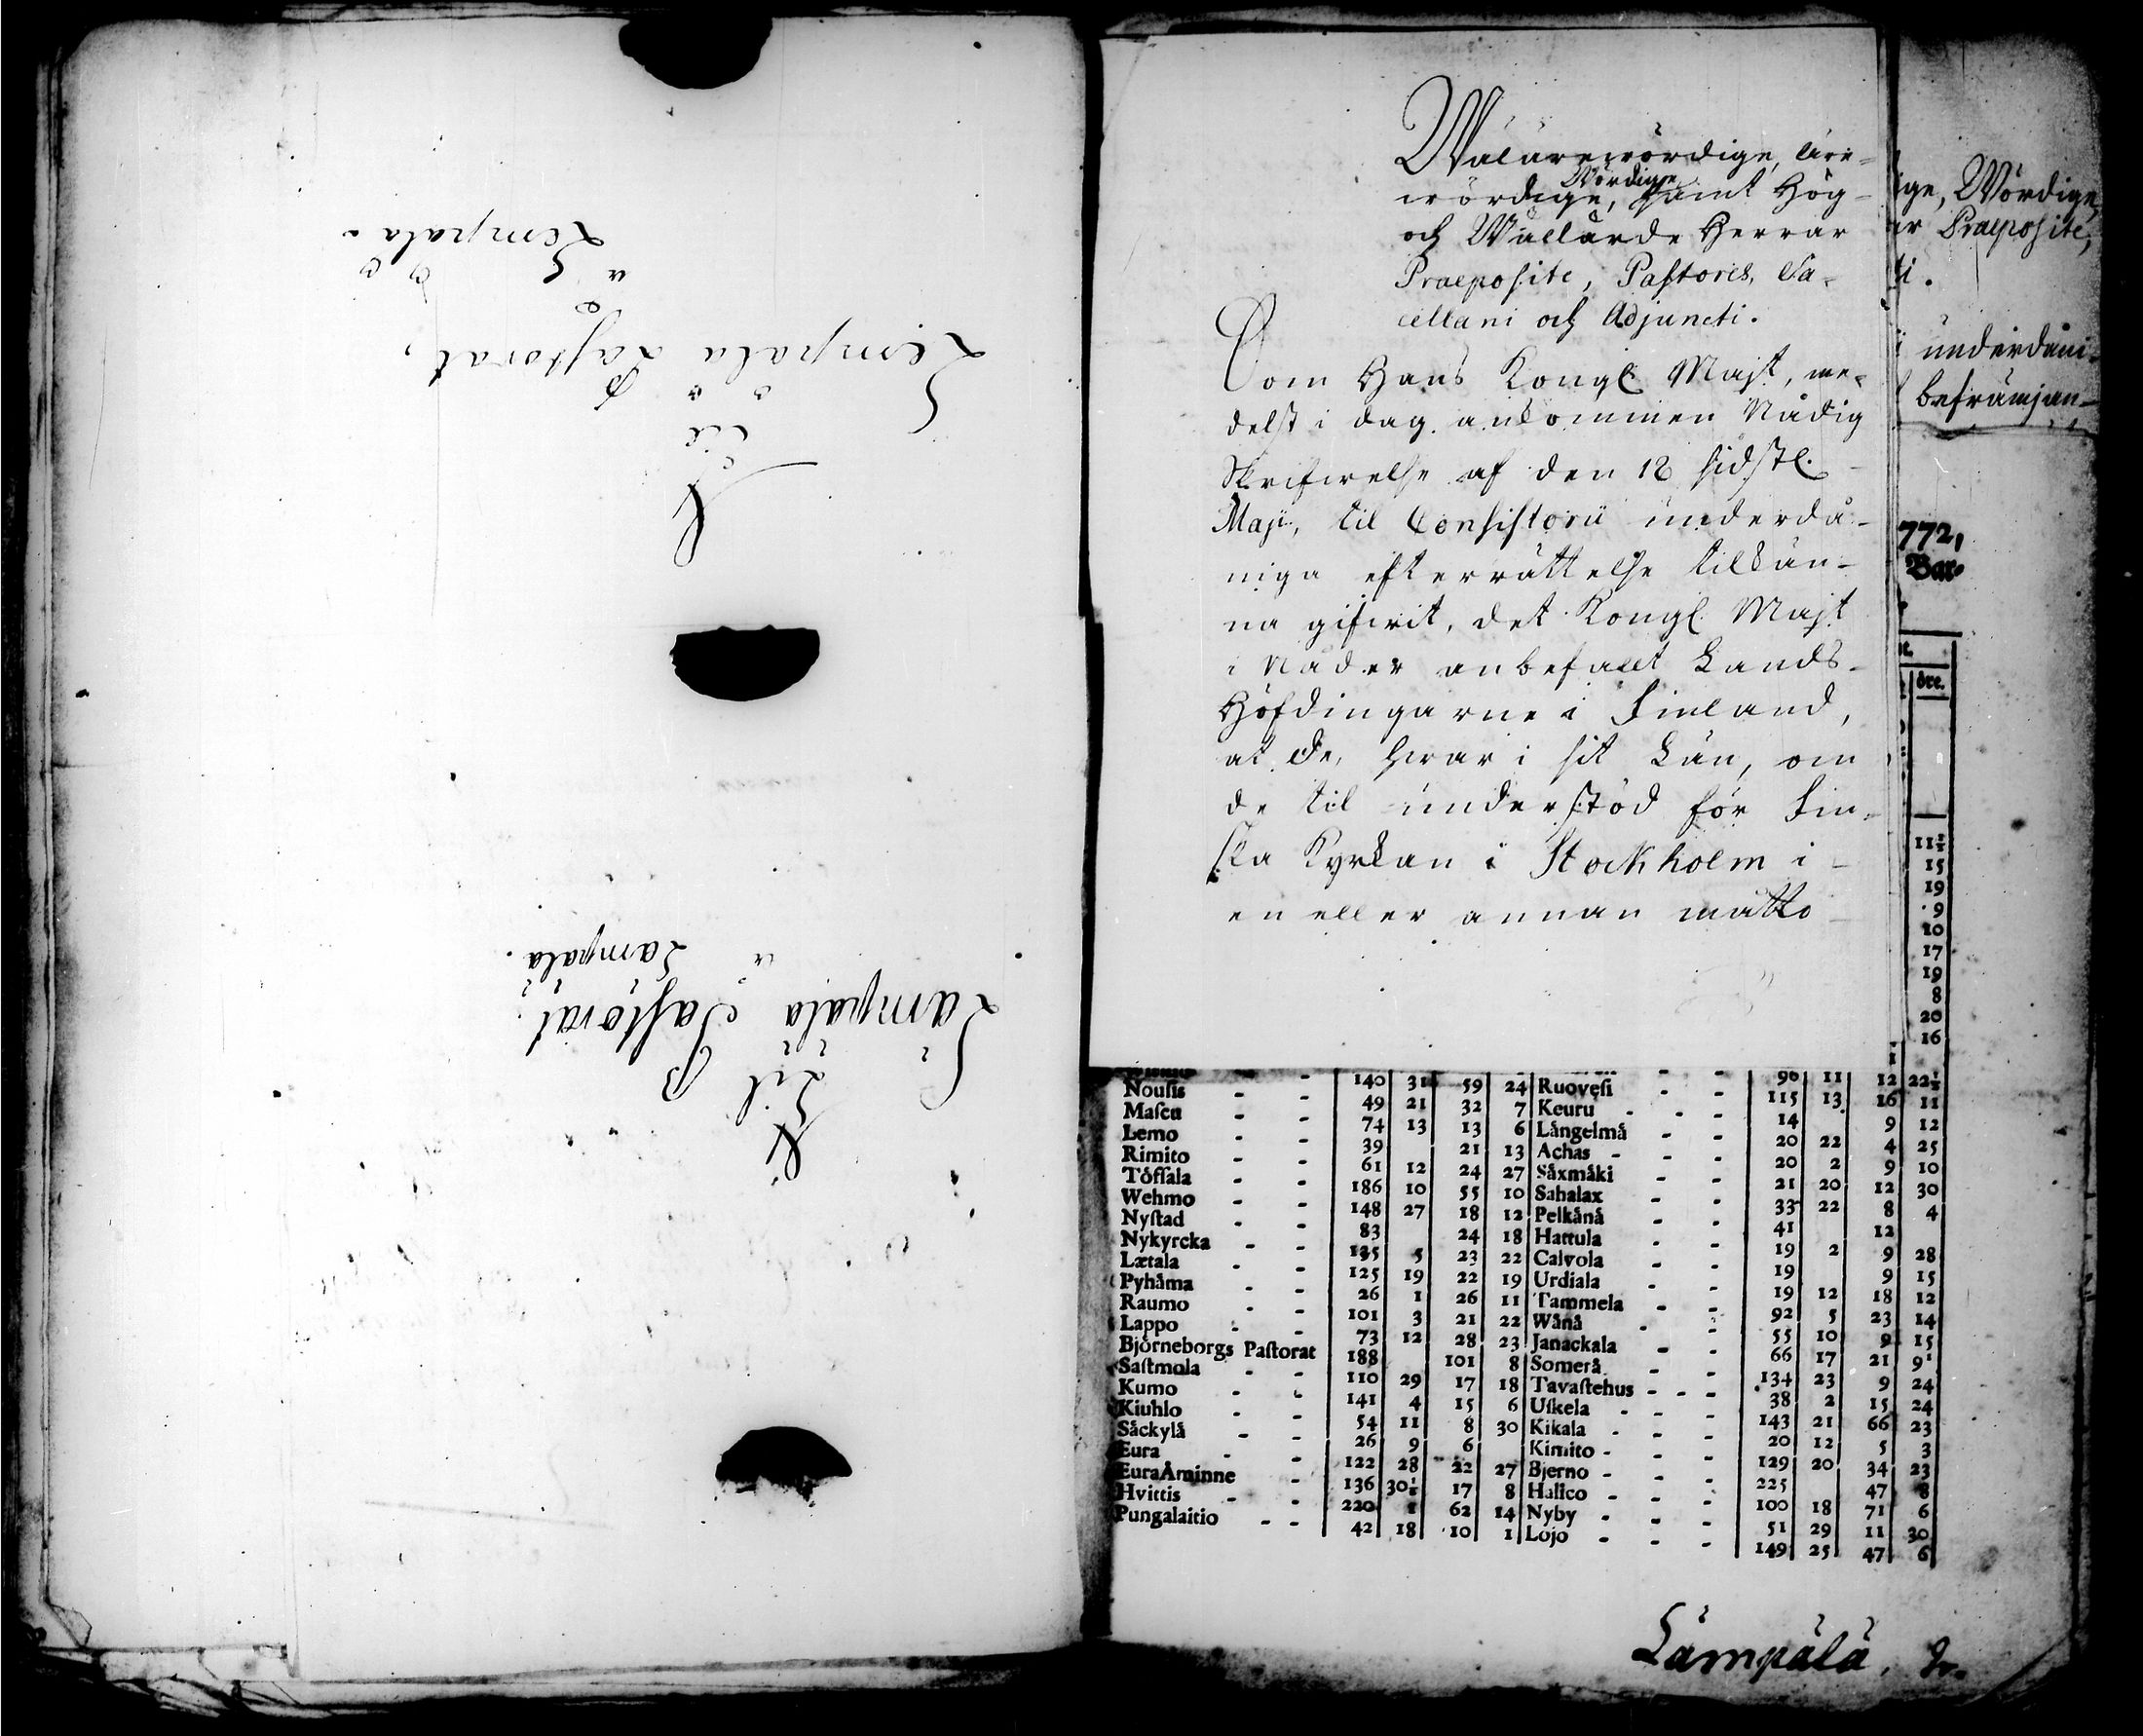 Lempälä.
Lempälä Pastorat,
til
Lämpälä.
Lämpälä Pastorat.
Til
Wälärewördige, Äre-
Wördige
wördige, samt Hög-
och Wällärde Herrar
Praeposite, Pastores, Sa-
cellani och Adjuncti.
Som Hans Kongl. Majt, me-
delst i dag ankommen Nådig
Skrifwelse af den 18 sidstl.
Maji, til Consistorii underdå-
niga efterrättelse tilkän-
na gifwit, det Kongl. Majt
i Nåder anbefallt Lands-
Höfdingarne i Finland,
at de, hwar i sit Län, om
de til understöd för Fin-
ska Kyrkan i Stockholm i
en eller annan måtto
ige, Wördige,
ar Praeposite,
ti.
i underdåni-
befrämjan-
772,
Bar-
öre.
11½
15
19
9
10
17
19
8
20
16
140 31 59 24 96 11 12 22½
Nousis - - 49 21 32 7 Ruovesi - - 115 13 16 11
Mascu - - 74 13 13 6 Keuru - - - 14 9 12
Lemo - - 39 21 13 Långelmå - - 20 22 4 25
Rimito - - 61 12 24 27 Achas - - - 20 2 9 10
Töffala - - 186 10 55 10 Såxmåki - - 21 20 12 30
Wehmo - - 148 27 18 12 Sahalax - - 33 22 8 4
Nystad - - 83 24 18 Pelkånå - - 41 12
Nykyrcka - - 135 5 23 22 Hattula - - 19 2 9 28
Lætala - - 125 19 22 19 Calvola - - 19 9 15
Pyhåma - - 26 1 26 11 Urdiala - - 19 12 18 12
Raumo - - 101 3 21 22 Tammela - - 92 5 23 14
Lappo - - 73 12 28 23 Wånå - - 55 10 9 15
Björneborgs Pastorat 188 101 8 Janackala - - 66 17 21 9
Sastmola - - 110 29 17 18 Somerå - - 134 23 9 24
Kumo - - 141 4 15 6 Tavastehus - - - 38 2 15 24
Kiuhlo - - 54 11 8 30 Uskela - - - 143 21 66 23
Såckylå - - 26 9 6 Kikala - - - 20 12 5 3
Eura - - 122 28 22 27 Kimito - - - 129 20 34 23
EuraÅminne - 136 30½ 17 8 Bjerno - - - 225 47 8
Hvittis - - 220 1 62 14 Halico - - - 100 18 71 6
Pungalaitio - - 42 18 10 1 Nyby - - - 51 29 11 30
Lojo - - - 149 25 47 6
Lämpälä.